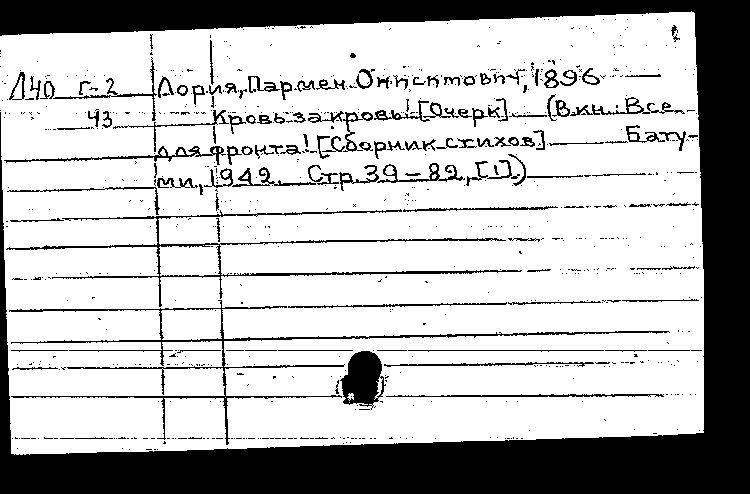 Л40 Г-2 Лория, Пармен Онисимович, 1896
43 Кровь за кровь! [Очерк]. (В кн.: Все
для фронта! [Сборник стихов]. Бату-
ми, 1942. Стр. 39-82, [1].)